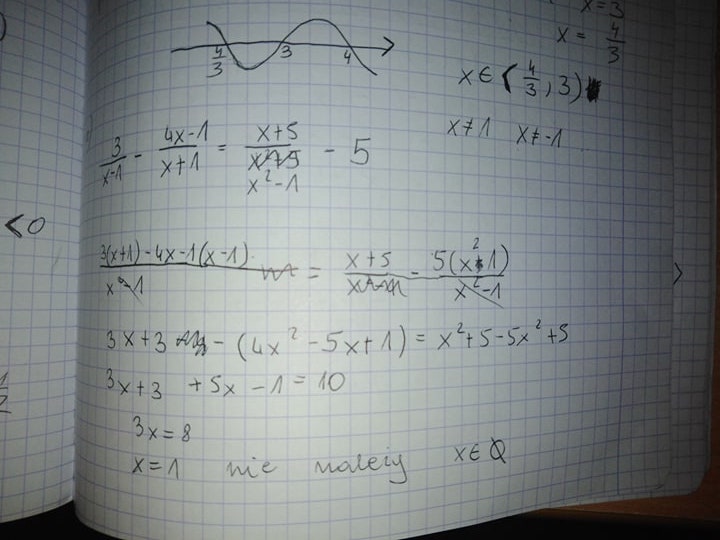 x=3
x = 4/3
4/3 3 4
x∈(4/3, 3)
x≠1 x≠-1
3/(x-1) - (4x-1)/(x+1) = (x+5)/(x²-1) - 5
<0
(3(x+1)-4x-1(x-1))/(x²-1) = (x+5)/(x²-1) - 5(x²-1)/(x²-1)
3x+3 - (4x²-5x+1) = x²+5-5x²+5
3x+3 +5x -1=10
3x=8
x=1 nie należy x∈Q
1/2